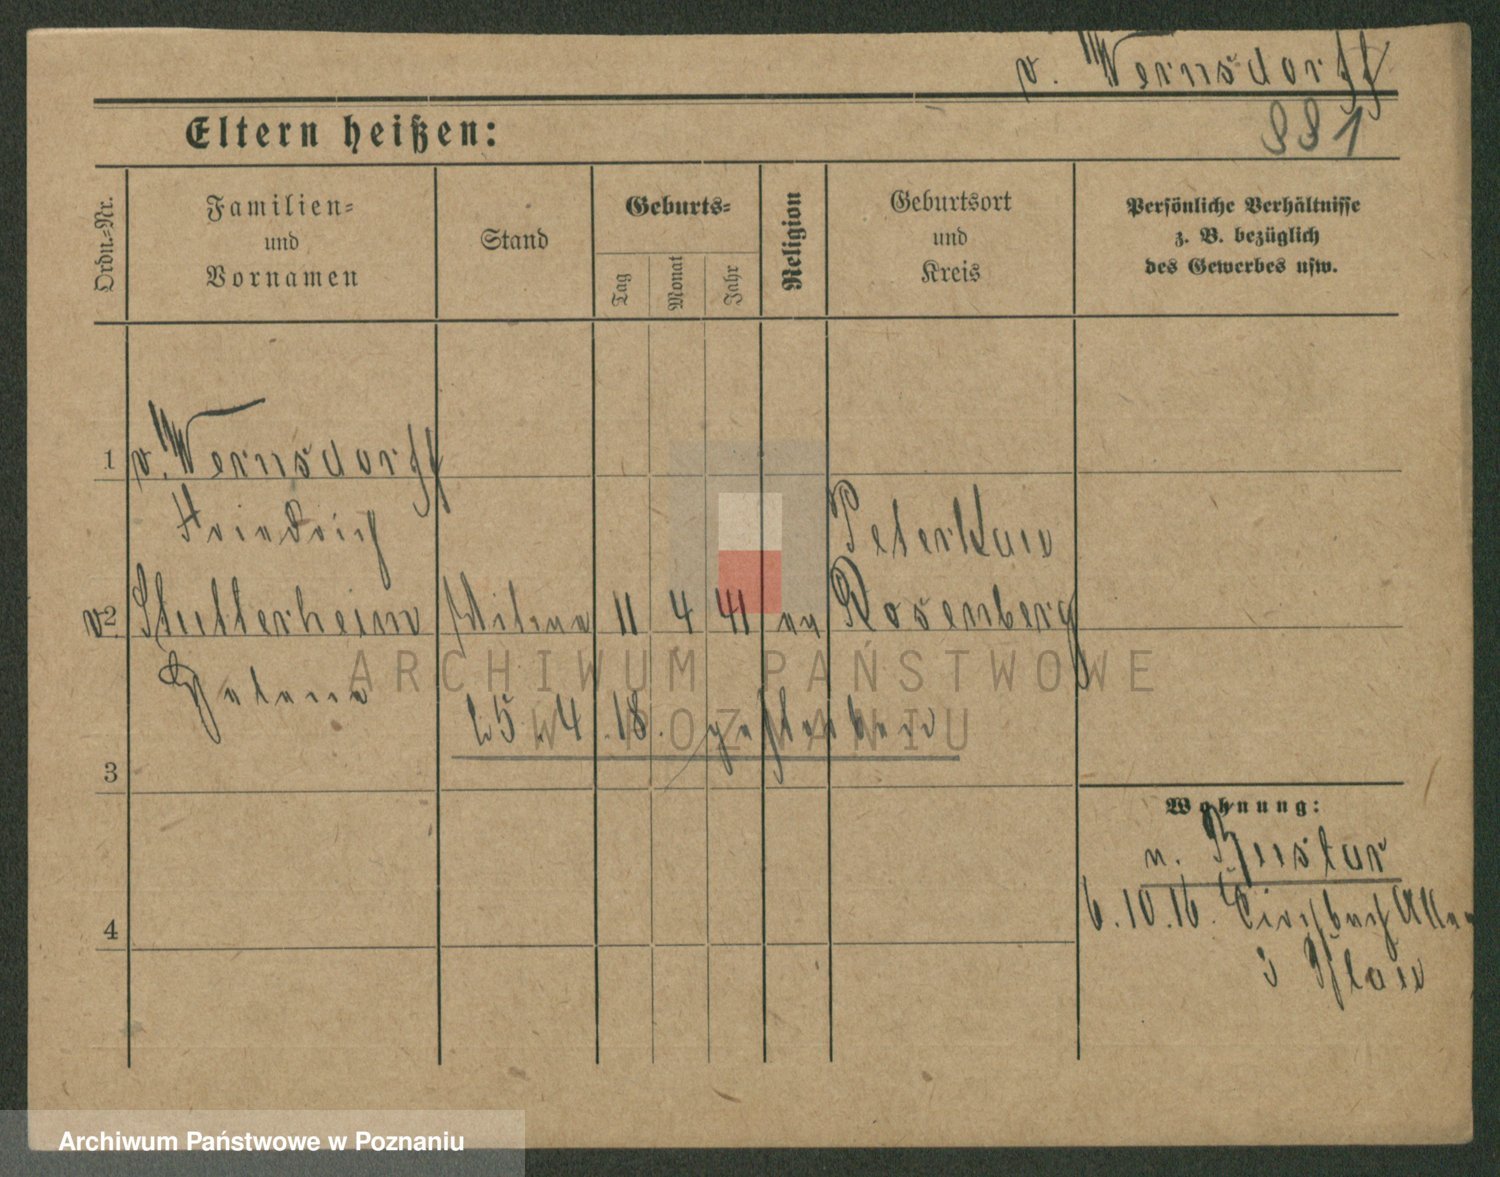 v. Wernsdorff
881
Eltern heißen:
Ordn.-Nr.
Familien-
und
Vornamen
Stand
Geburts-
Tag
Monat
Jahr
Religion
Geburtsort
und
Kreis
Persönliche Verhältnisse
z. B. bezüglich
des Gewerbes usw.
1 v. Wernsdorff
Friedrich
Peterkau
v. 2 Stutterheim Witwe 11 4 41 ev Rosenberg
Helene
25. 4. 18. gestorben
3
Wohnung:
n.
6. 10. 16.
4
ARCHIWUM PAŃSTWOWE
W POZNANIU
Archiwum Państwowe w Poznaniu